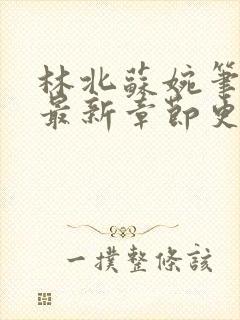 林北蘇婉筆
最新章節史
一撲整條該